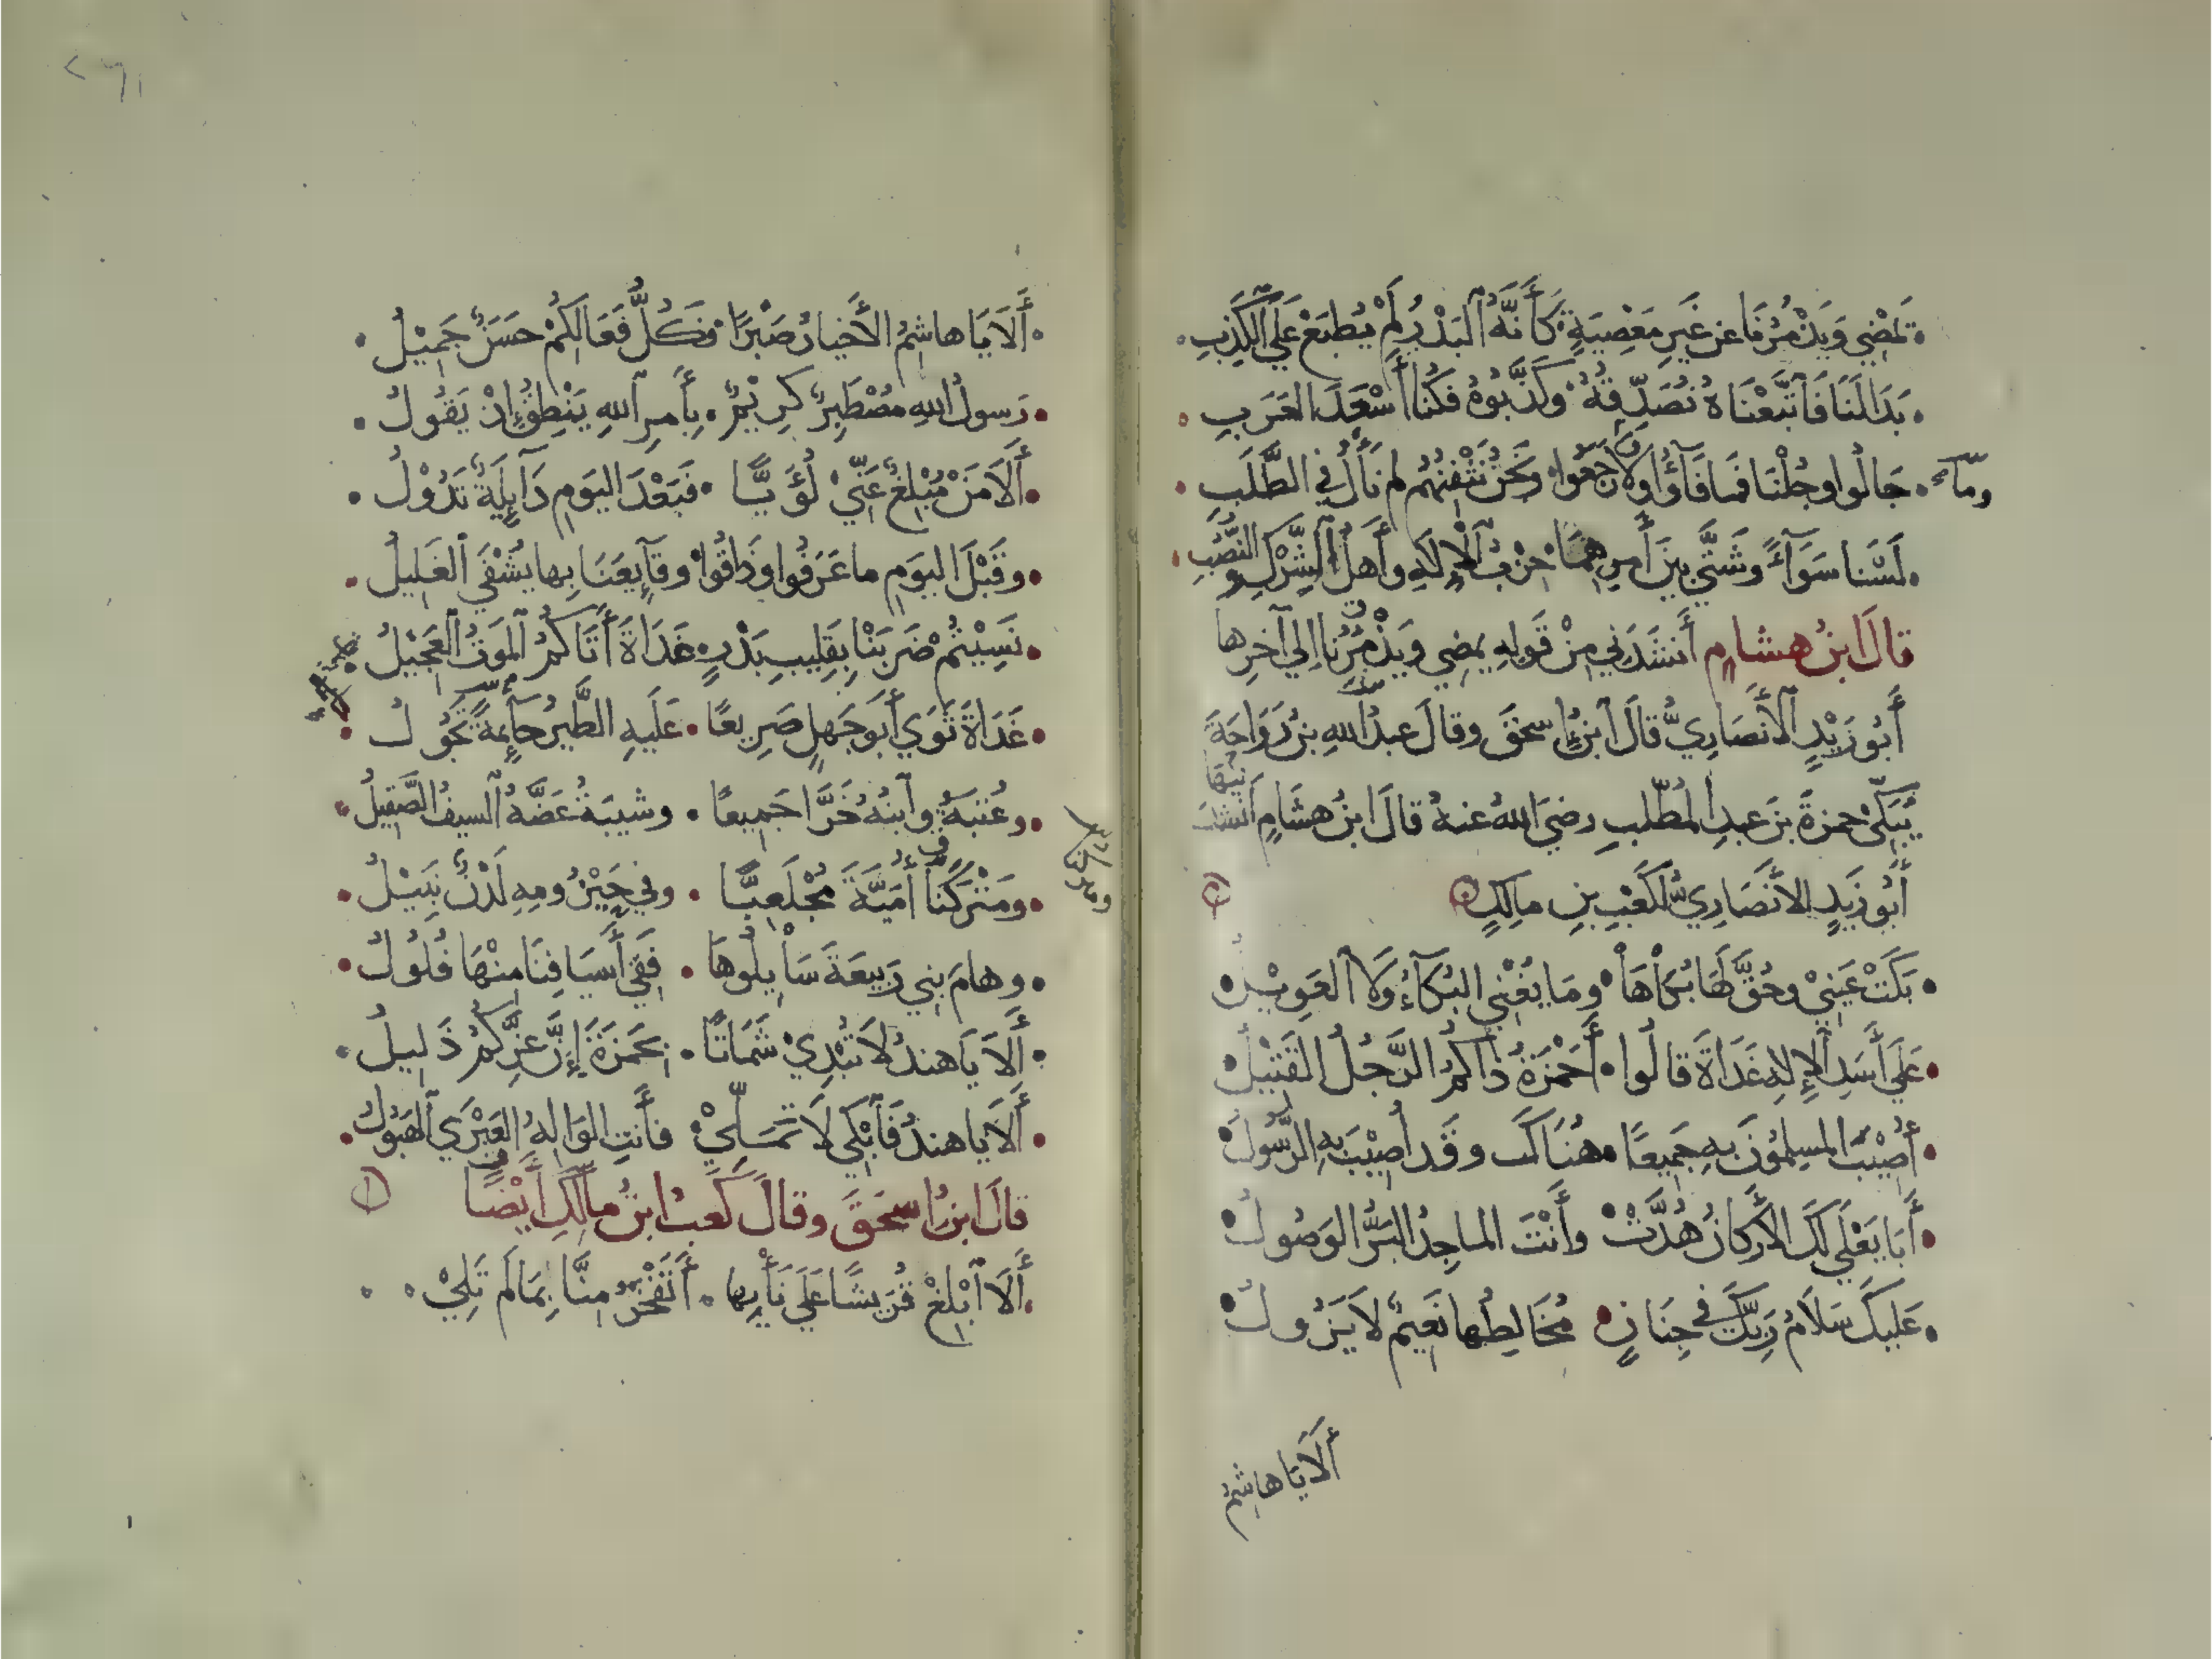 تَمْضِي وَيَذْمُرُنَا عن غَيرِ مَعْصِيَةٍ كَأَنَّهُ البَدْرُ لَمْ يُطبَعْ عَلَى الكَذِبِ
بَدَا لَنَا فَاتَّبَعْنَاهُ نُصَدِّقُهُ وكَذَّبُوهُ فكُنَّا أَسْعَدَ العَرَبِ
جَالُوا وجُلْنَا فما فَآؤُا ولا رَجَعُوا ونَحْنُ نَثْفِنُهُم لم نَأْلُ في الطَّلَبِ
لَسْنا سَوَآءً وشَتَّى بينَ أَمرِهِمَا حِزْبُ الإِلَهِ وأَهلُ الشِّركِ والنُّصُبِ
قالَ ابنُ هشامٍ أَنشَدَنِي مِنْ قَولِهِ يمضِي ويَذْمُرُنا إلي آخرِها
أَبُو زَيْدٍ الأَنصَارِيُّ قالَ ابنُ إسحقَ وقالَ عبدُ اللهِ بنُ رَوَاحَةَ
يُبَكِّي حمزةَ بنَ عبدِ المُطّلبِ رضيَ اللهُ عنهُ قالَ ابنُ هشَامٍ أنشدنيها
أَبُو زَيدٍ الأنصَارِيُّ لكَعْبِ بنِ مالِكٍ
بَكَتْ عَيْنِي وحُقَّ لَهَا بُكَاهَا ومَا يُغْنِي البُكَآءُ ولَا العَوِيْلُ
عَلَى أَسَدِ الإِلهِ غَدَاةَ قالُوا أَحَمْزَةُ ذَاكُمُ الرَّجُلُ القَتِيْلُ
أُصِيْبَ المسلِمُونَ بهِ جَمِيعًا هُنَاكَ وقَد أُصِيْبَ بهِ الرَّسُولُ
أَبَا يَعْلَي لَكَ الأَركانُ هُدَّتْ وأَنْتَ الماجِدُ البَرُّ الوَصُولُ
عَلَيكَ سَلَامُ رَبِّكَ في جِنَانٍ مُخَالِطُها نَعِيْمٌ لَا يَزُولُ
أَلَا يَا هاشِمُ
أَلَا يَا هاشِمُ الأَخيارُ صَبْرًا فكُلُّ فَعَالِكُمْ حسَنٌ جَمِيْلُ
رَسولُ اللهِ مُصْطَبِرٌ كرِيْمٌ بأَمرِ اللهِ يَنْطِقُ إِذْ يَقُولُ
أَلَا مَنْ مُبْلِغٌ عَنِّيْ لُؤَيًّا فبَعْدَ اليَومِ دَآيِلَةٌ تَدُوْلُ
وقَبْلَ اليَومِ ما عَرَفُوا وذَاقُوا وقَآيِعَنَا بِها يُشْفَي الغَلِيلُ
نَسِيْتُمْ ضَرْبَنَا بِقَلِيبِ بَدْرٍ غَدَاةَ أَتَاكُمُ المَوتُ العَجِيْلُ
غَدَاةَ ثَوَي أَبو جَهلٍ صَرِيعًا عَلَيهِ الطَّيرُ حآئِمَةً تَجُولُ
وعُتْبَةُ وابنُهُ خَرَّا جَمِيعًا وشيبَةُ عَضَّهُ السيفُ الصَّقِيلُ
ومَتْرَكُنَا أُمَيَّةَ مُجْلَعِبًّا وفي حَيْزُومِهِ لَدْنٌ نَبِيْلُ
وهامَ بنِي رَبِيعَةَ سَايِلُوهَا ففِي أَسيَافِنَا مِنْهَا فُلُولُ
أَلَا يَا هندُ لَا تُبْدِيْ شَمَاتًا بحَمزَةَ إِنَّ عِزَّكُمُ ذَلِيلُ
أَلَا يا هندُ فَابْكِي لَا تَمَلِّيْ فأَنتِ الوَالِهُ العَبْرَي الهَبُولُ
قالَ ابنُ إسحَقَ وقالَ كَعبُ ابنُ مالِكٍ أَيْضًا
أَلَا ابْلِغْ قُرَيشًا عَلَى نَأْيِها أَتَفْخَرُ مِنَّا بِمَا لَم تَلِيْ